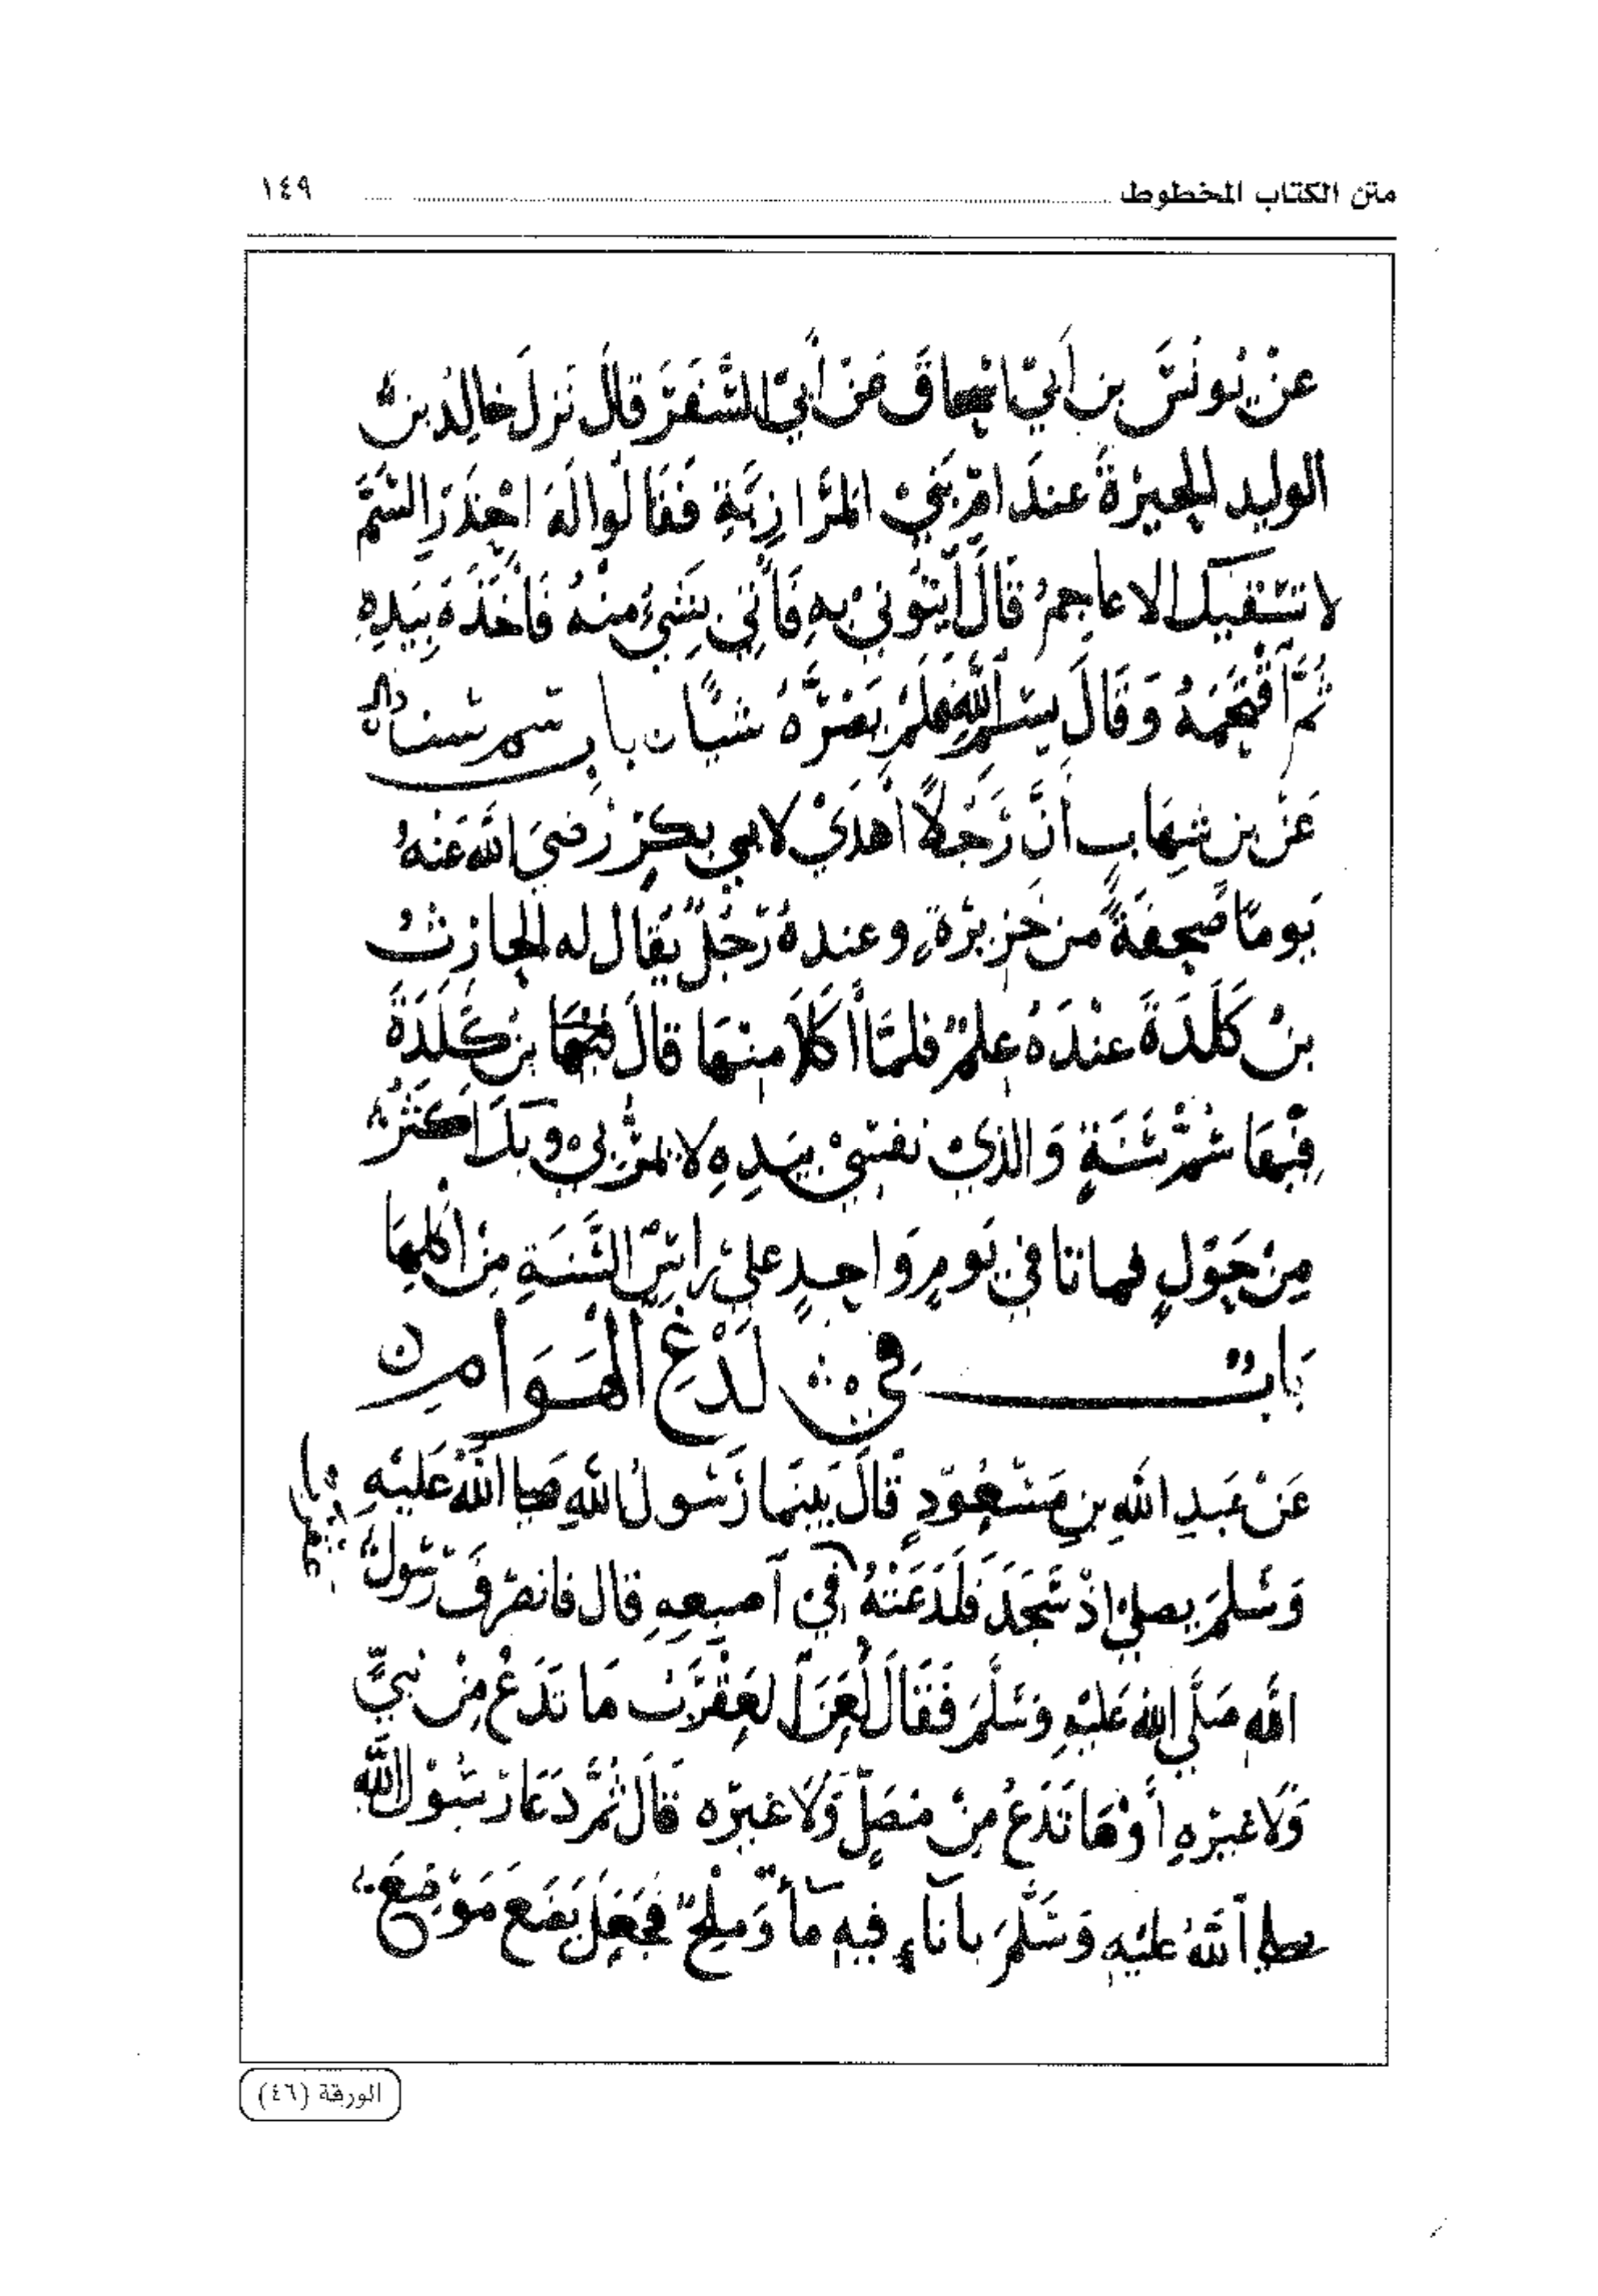 متن الكتاب المخطوط ١٤٩
عَنْ يُونُسَ بن أَبي اسْحاقَ عَنْ أَبي السَّفَرَ قالَ نَزلَ خالِدُ بنُ
الوليد الحِيرْةَ عندَ امّ بَنيْ المَرَازِبَةِ فَقَالُوا لَهَ احْذَرَ السَّمَّ
لا تسْقيكَ الاعاجمُ قَالَ اَيتُونيْ بهِ فَأُتِي بِشَيْءٍ منْهُ فَأَخَذَهَ بِيَدِهِ
ثُمَّ أَقْتَحَمَهُ وَقَالَ بِسْم اللهِ فَلَمْ يَضُرَّهُ شيًا ن باب سم سنه
عَنْ بن شِهَاب أَنَّ رَجُلاً أَهْدَيْ لابي بكرٍ رَضيَ اللهُ عَنْهُ
يَومًا صَحفَةً من خَزِيرْة وعندهُ رَجُلٌ يُقَال له الحارثُ
بنْ كَلَدَةَ عنْدَهُ عِلمٌ فلمَّا أَكَلاَ منْهَا قالَ بنُ كَلَدَةَ
فِيْهَا سُمُّ سَنَةٍ وَالذيْ نفسْيْ بيَدِهِ لا يَمُرُّ بيْ وبكَ اكثَرُ
مِنْ حَوْلٍ فماتا في يَومٍ وَاحِدٍ عليْ رَاسِ السَّنَةِ مِنْ اكْلِهَا
بَابٌ في لَدْغِ الهَوَامِ ن
عَنْ عَبدِ اللهِ بنِ مَسْعُودٍ قَالَ بَيْنَما رَسُولُ اللهِ صَلى اللهُ عَليْهِ
وَسَلمَ يصلي اذْ سَجَدَ فَلَدَغَتْهُ في اَصبِعِهِ قال فانصْرفَ رَسُولُ
اللهِ صَلَّي اللهُ عَليْهِ وَسَلَّمَ فَقَالَ لَعَنَ اَلعَقْرَبَ مَا تَدَعْ مِنْ نَبيٍّ
وَلاَ غيرْهِ أَوْ مَا تَدَعُ مِنْ مُصَلٍّ وَلاَ غيرْه قَالَ ثُمَّ دَعَا رَسُوْل اللهِ
صلى اَللهُ عَليْهِ وَسَلَّمَ بأناءٍ فيهِ مأٌ وَمِلْحٌ فَجَعَلَ يَضَع مَوْضِعَ
الورقة (٤٦)